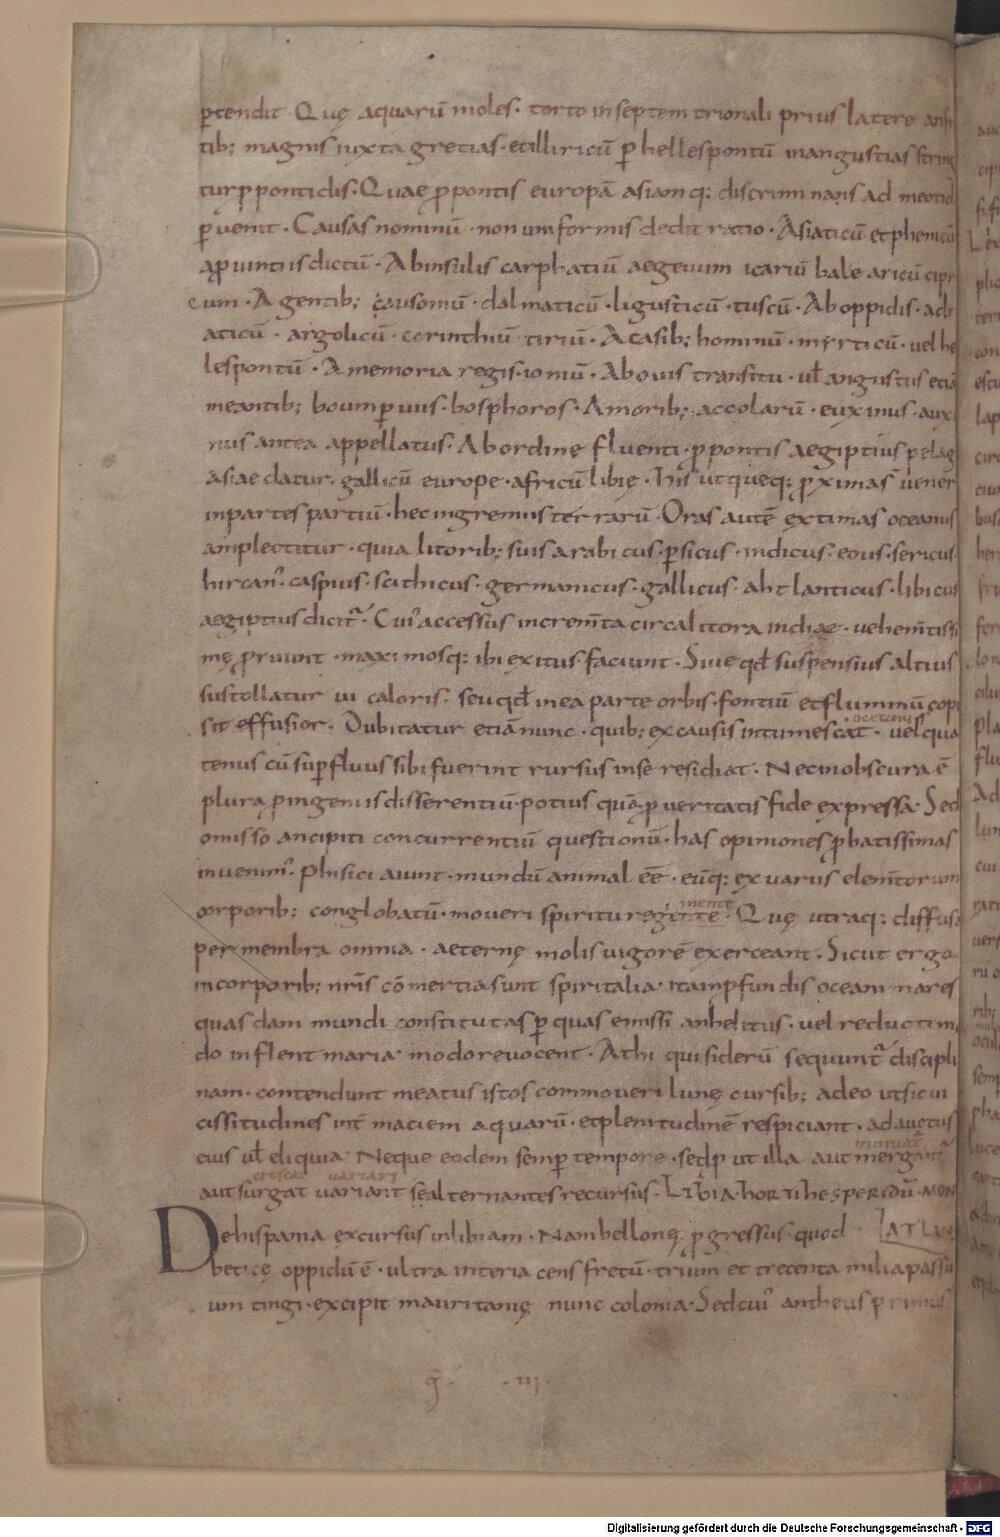 ꝑtendit · Quę aquarū moles · torto inseptemtrionali prius latere
tib; magnis iuxta gretias · etilliricū ꝑ hellespontū inangustias string
turꝓpontidis · Quae ꝓpontis europā asiamq; discriminans ad meotid
ꝑuenit · Causas nominū · non uniformis dedit ratio · Asiaticū etphenicū
aꝓuintiis dictū · Abinsulis carphatiū aegeuum icariū balearicū cipr
eum · Agentib; causoniū · dalmaticū · ligusticū · tuscū · Aboppidis · adri
aticū · argolicū · corinthiū tiriū · Acasib; hominū · mirticū · uel he
lespontū · Amemoria regis · ioniū · Abouis transitu · uł angustus etiā
meantib; boum ꝑuiis · bosphoros · Amorib; accolarū · euxinus · auxi
nus antea appellatus · Abordine fluenti · ꝓpontis aegiptius pelag
asiae datur · gallicū europe · africū libię · His utqueq; ꝓximas uener
inpartes partiū · hec ingremiis terrarū · Oras autē extimas oceanus
amplectitur · quia litorib; suis arabicus · ꝑsicus · indicus · eous · sericus ·
hircan᾿ · caspius · scithicus · germanicus · gallicus · ahtlanticus · libicus
aegiptius dicit᷑ · Cui᾿ accessus increm̄ta circa litora indiae · uehem̄tissi
mę ꝓruunt · maximosq; ibi exitus faciunt · Siue qd̄ suspensius altius
sustollatur ui caloris · seu qd̄ in ea parte orbis · fontiū et fluminū copi
oceanus
sit effusior · Dubitatur etiā nunc · quib; excausis intumescat · uel qua
tenus cū suꝑfluus sibi fuerint rursus inse residiat · Nec in obscura ē
plura ꝓingeniis disserentiū · potius quā ꝓ ueritatis fide expressa · Sed
omisso ancipiti concurrentiū questionū · has opiniones ꝓbatissimas
inuenim᾿ · Phisici aiunt · mundū animal eē · eūq; ex uariis elem̄torum
mente
corporib; conglobatū · moueri spiritu regente · Quę utraq; diffusa
per membra omnia · aeternę molis uigorē exerceant · Sicut ergo
incorporib; nr̄is cōmertia sunt spiritalia · ita inꝓfundis oceani nares
quasdam mundi constitutas ꝑ quas emissi anhelitus · uel reducti m
do inflent maria · modo reuocent · Athi qui siderū sequunt᷑ discipli
nam · contendunt meatus istos commoueri lunę cursib; adeo ut sic ui
cissitudines int̄ maciem aquarū · et plenitudinē respiciant · ad auctus
minuat᷑
eius uł eliquia · Neque eodem semꝑ tempore · sed ꝓut illa aut mergat᷑
crescat uariari
aut surgat uariant se alternantes recursus · LIBIA · HORTI HESPERIDŪ · MON
Dehispania excursus inlibiam · Nam bellonę ꝓgressus · quod ATLAN
beticę oppidū ē · ultra interiacens fretū · trium et trecenta milia passu
um tingi · excipit mauritanię nunc colonia · Sed cui᾿ antheus primus
q̄ · · III ·